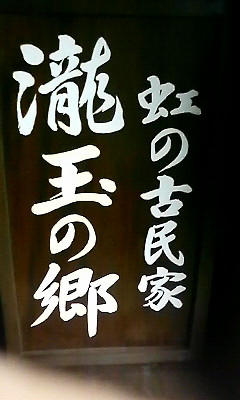 虹の古民家
瀧玉の郷